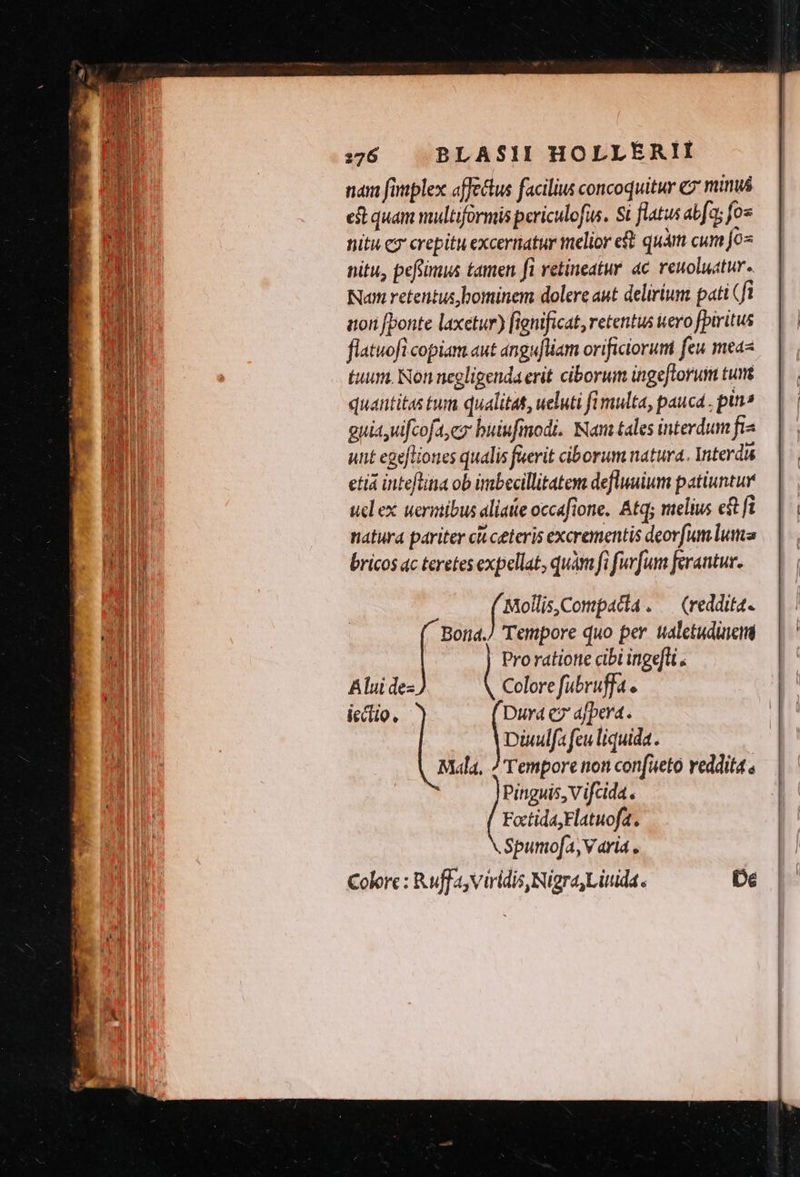 276 BLASII HOLLERII
nam ſimplex affectus facilius concoquitur & minus
eſt quam multiformis periculoſus. Si flatus abſq; ſo⸗
nitu & crepitu excernatur melior eſt quàm cum ſo⸗
nitu, peſsimus tamen ſi retineatur ac reuoluatur.
Nam retentus, hominem dolere aut delirium pati (ſi
non ſponte laxetur) ſignificat, retentus uero ſpiritus
flatuoſi copiam aut anguſtiam orificiorum ſeu mea⸗
tuum. Non negligenda erit ciborum ingeſtorum tum
quantitas tum qualitas, ueluti ſi multa, pauca. pin⸗
guia, uiſcoſa, & huiuſmodi. Nam tales interdum fi⸗
unt egeſtiones qualis fuerit ciborum natura. Interdũ
etiã inteſtina ob imbecillitatem defluuium patiuntur
uel ex uermibus aliaûe occaſione. Atq; melius eſt ſi
natura pariter cũ cæteris excrementis deorſum lum⸗
bricos ac teretes expellat, quàm ſi ſurſum ferantur.
Mollis, Compacta. (reddita.
Bona. Tempore quo per ualetudinem
Pro ratione cibi ingeſti.
Alui de⸗ Colore ſubruffa.
iectio. Dura & aſpera.
Diuulſa ſeu liquida.
Mala. Tempore non conſueto reddita.
Pinguis, Viſcida.
Fœtida, Flatuoſa.
Spumoſa, Varia.
Colore: Ruffa, Viridis, Nigra, Liuida. De